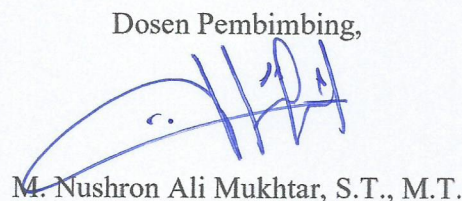 Dosen Pembimbing,
M. Nushron Ali Mukhtar, S.T., M.T.